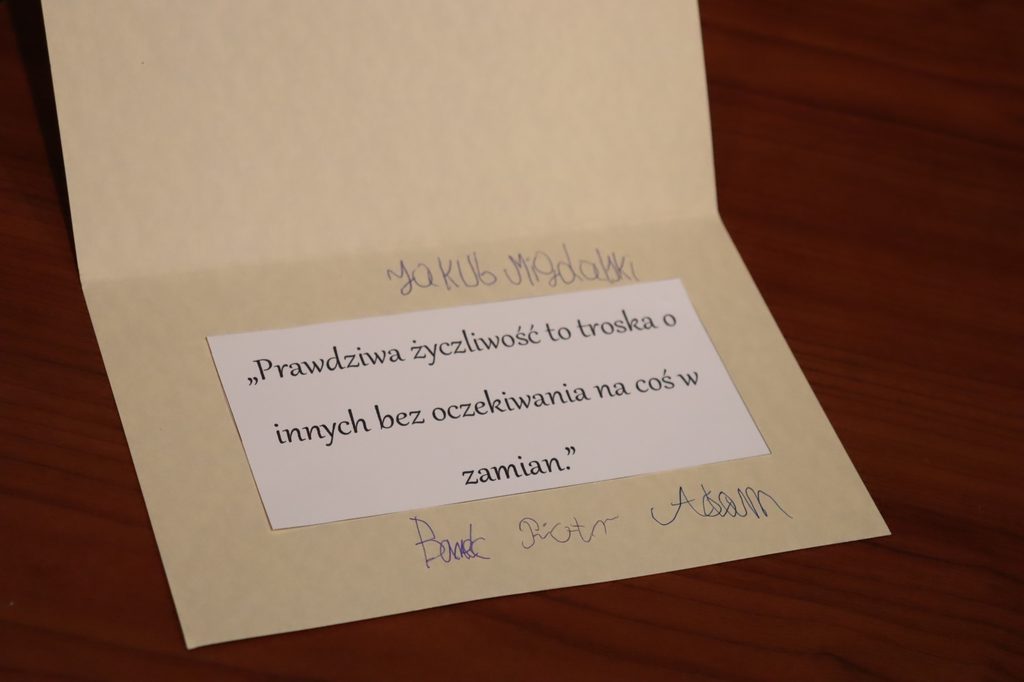 Jakub Migdalski
„Prawdziwa życzliwość to troska o
innych bez oczekiwania na coś w
zamian.”
Piotr Adam